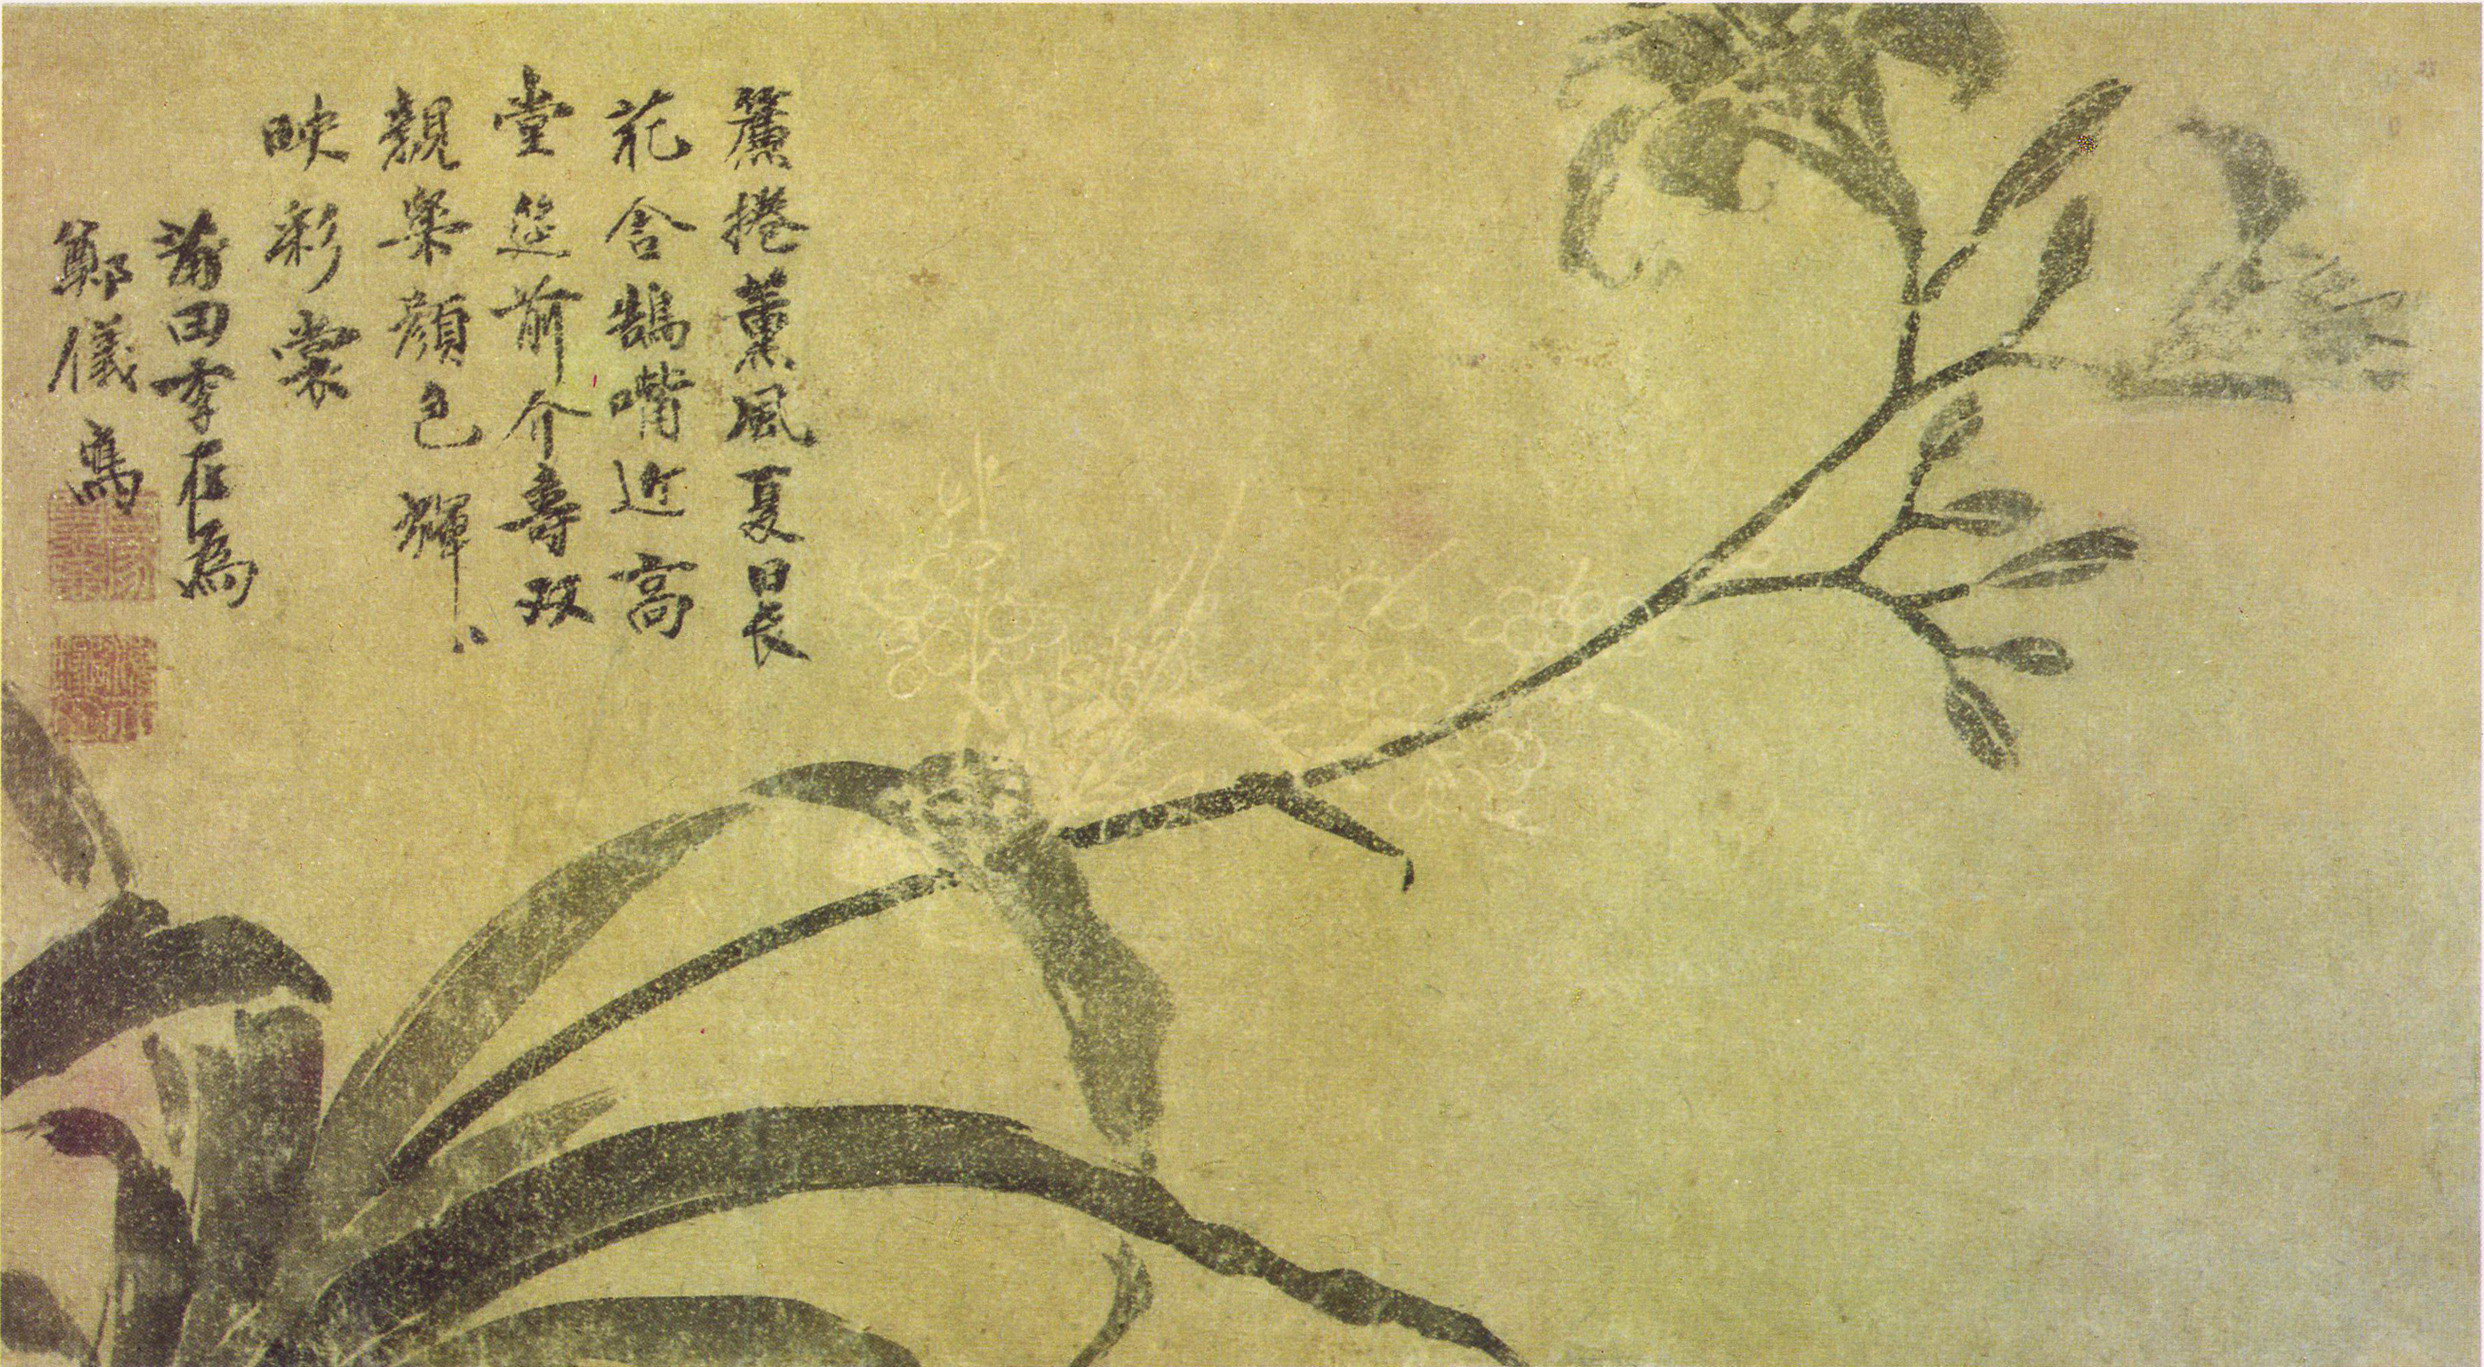 簾捲薰風夏日長
花含鵠嘴近高
堂筵前介壽双
親樂顏色輝〻
映彩裳
莆田李在為
鄭儀寫